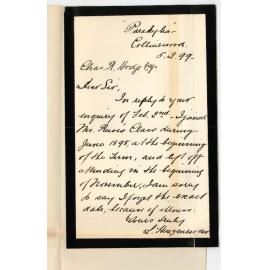 "Parakylia"
Collinswood.
5.2.99.
Chas. R. Hodge Esq.
Dear Sir,
In reply to your
enquiry of Feb. 2nd - I joined
Mr. Reeves Class during
June 1898, at the beginning
of the Term, and left off
attending in the beginning
of November, I am sorry
to say I forget the exact
date, because of illness.
Yours truly